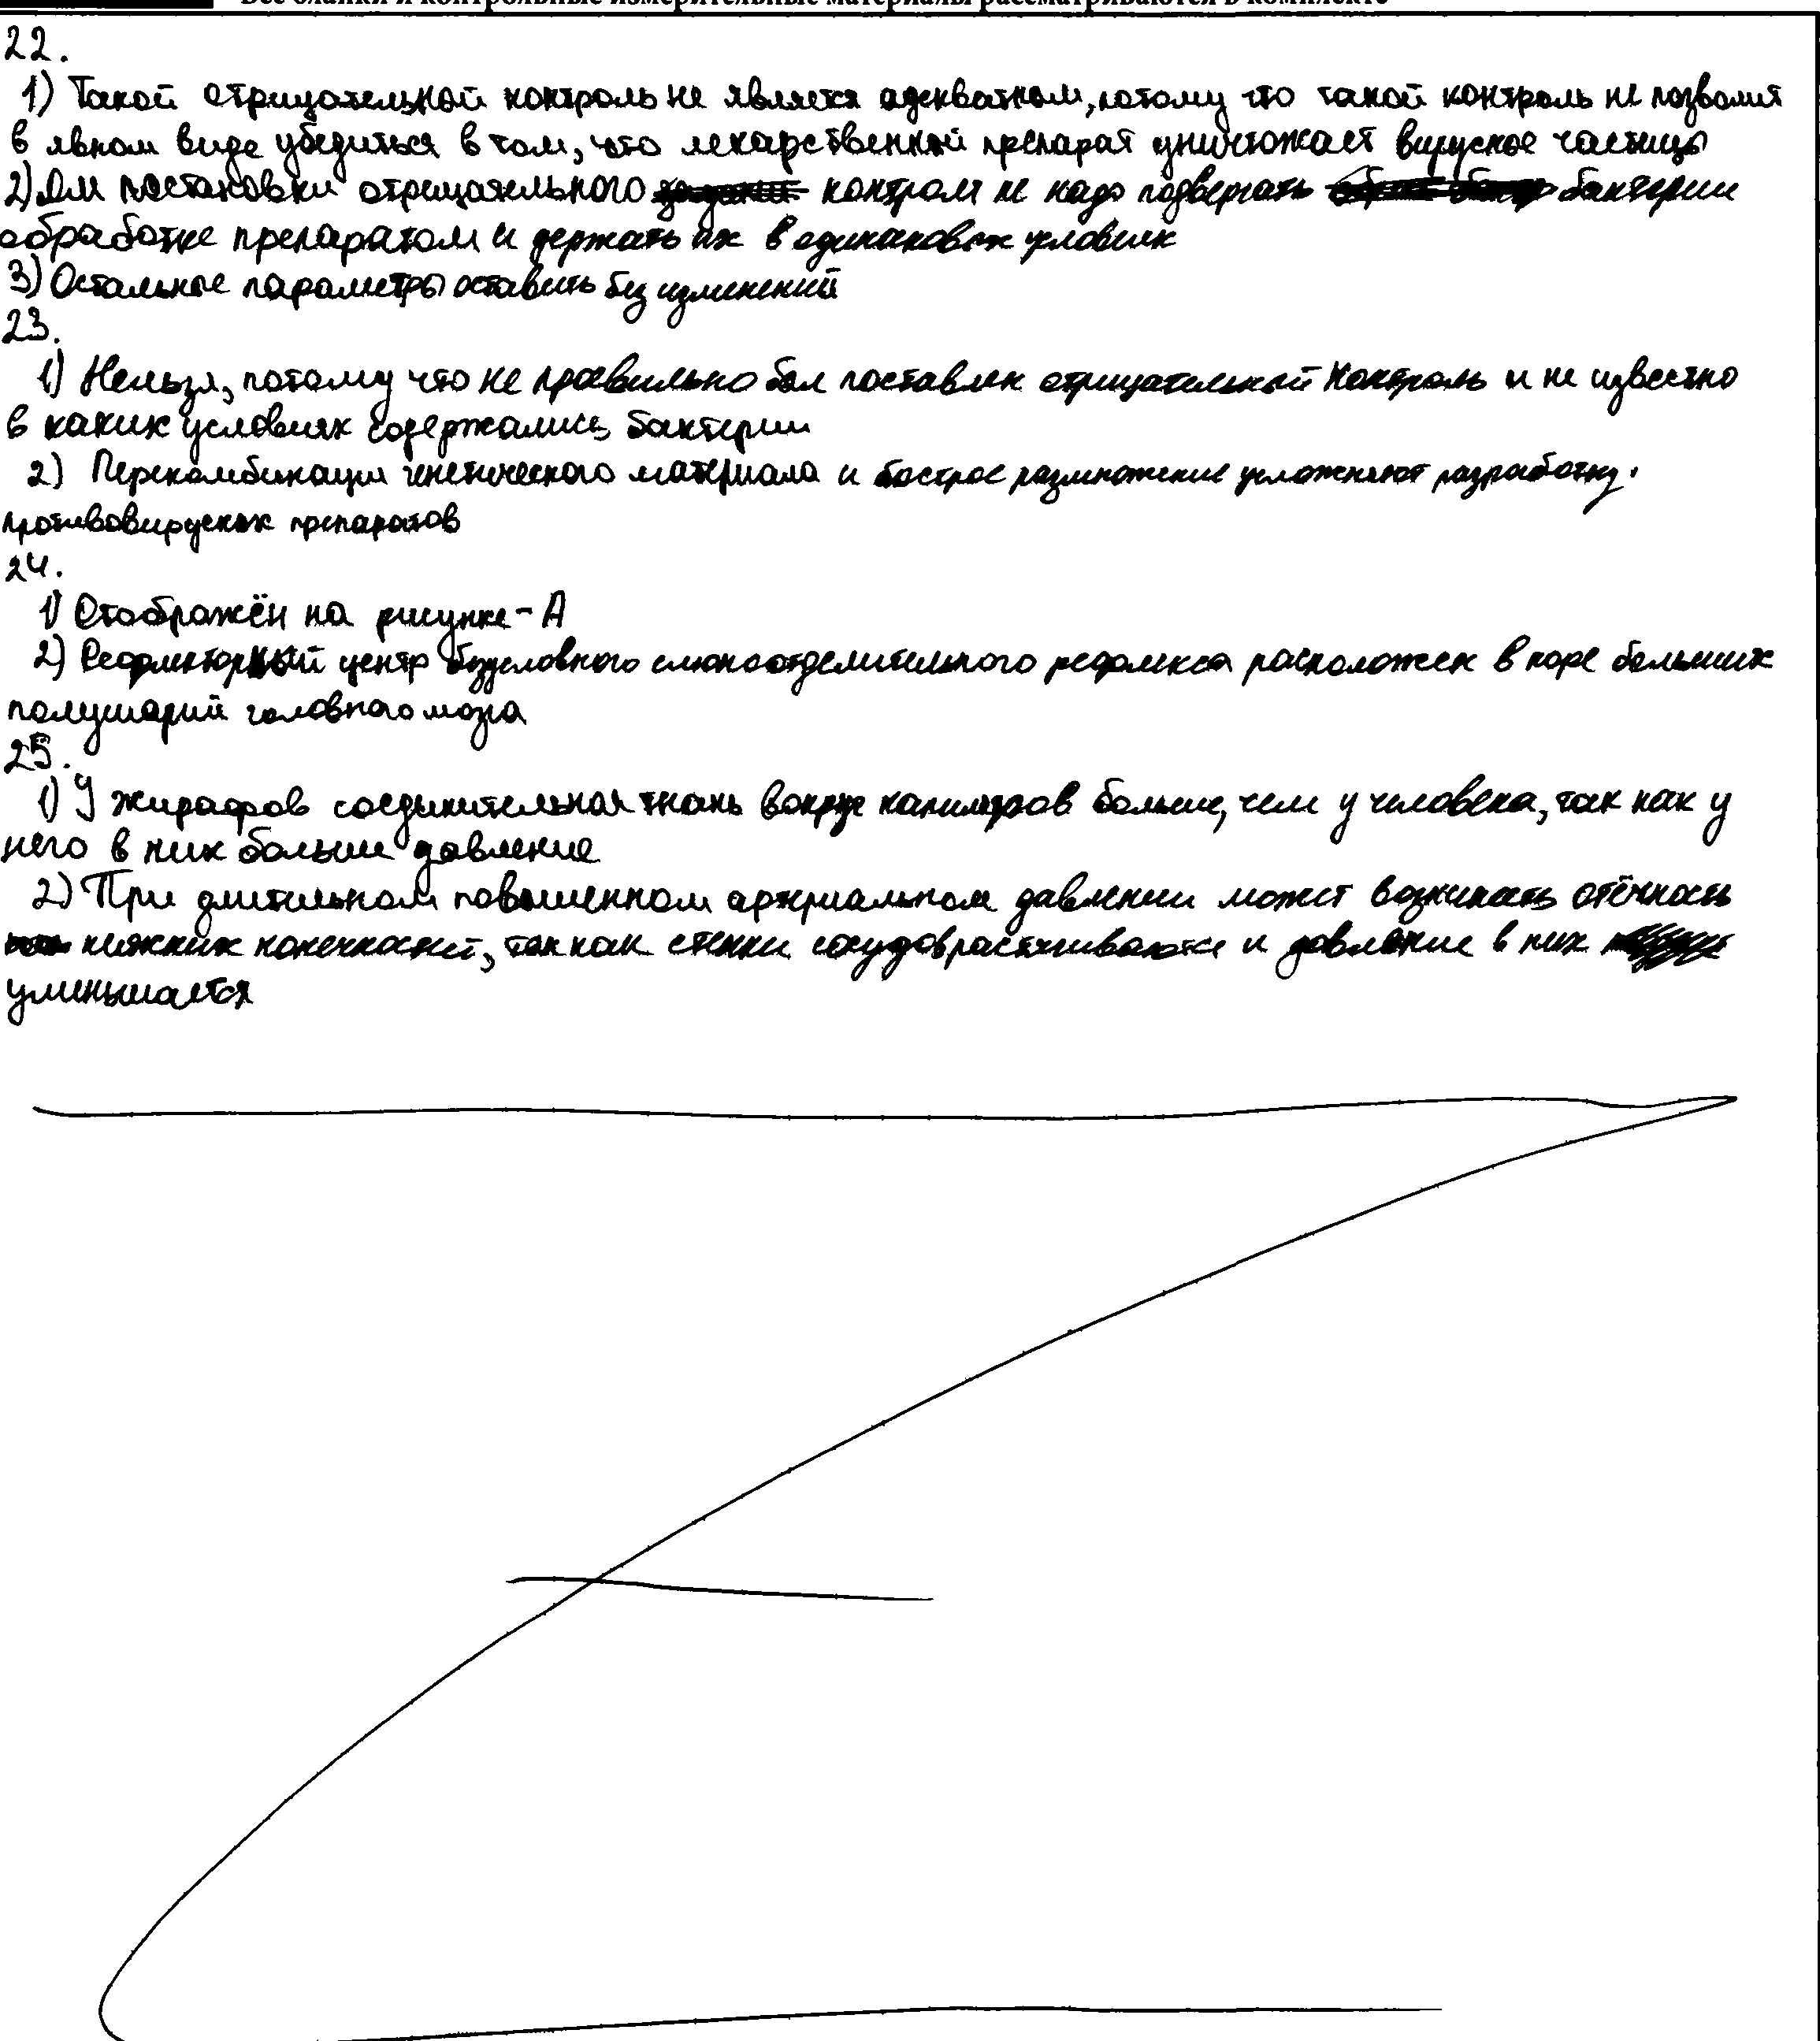 Все бланки и контрольные измерительные материалы рассматриваются в комплекте
22.
1) Такой отрицательный контроль не является адекватным, потому что такой контроль не позволит
в явном виде убедиться в том, что лекарственный препарат уничтожает вирусные частицы
2) Для постановки отрицательного контроля не надо подвергать бактерии
обработке препаратом и держать их в одинаковых условиях
3) Остальные параметры оставить без изменений
23.
1) Нельзя, потому что не правильно был поставлен отрицательный контроль и не известно
в каких условиях содержались бактерии
2) Перекомбинации генетического материала и быстрое размножение усложняют разработку
противовирусных препаратов
24.
1) Отображён на рисунке - А
2) Рефлекторный центр безусловного слюноотделительного рефлекса расположен в коре больших
полушарий головного мозга
25.
1) У жирафов соединительная ткань вокруг капиляров больше, чем у человека, так как у
него в них больше давление
2) При длительном повышенном артериальном давлении может возникать отёчность
нижних конечностей, так как стенки сосудов растягиваются и давление в них
уменьшается